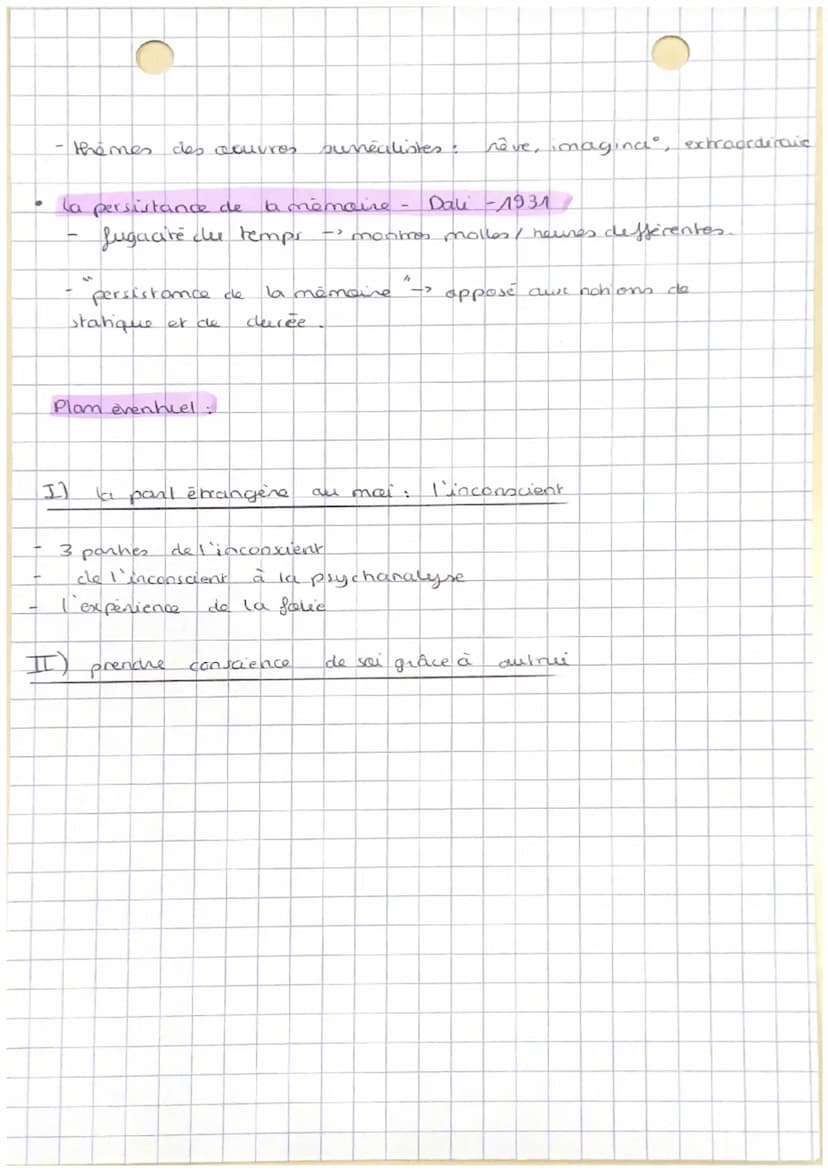 - thèmes des œuvres surréalistes : rêve, imagina°, extraordinaire
• la persistance de la mémoire - Dali - 1931
- fugacité du temps -> montres molles / heures différentes.
- "persistance de la mémoire" -> opposé aux notions de
statique et de durée.
Plan éventuel :
I) la part étrangère au moi : l'inconscient
- 3 parties de l'inconscient
- de l'inconscient à la psychanalyse
- l'expérience de la folie
II) prendre conscience de soi grâce à autrui